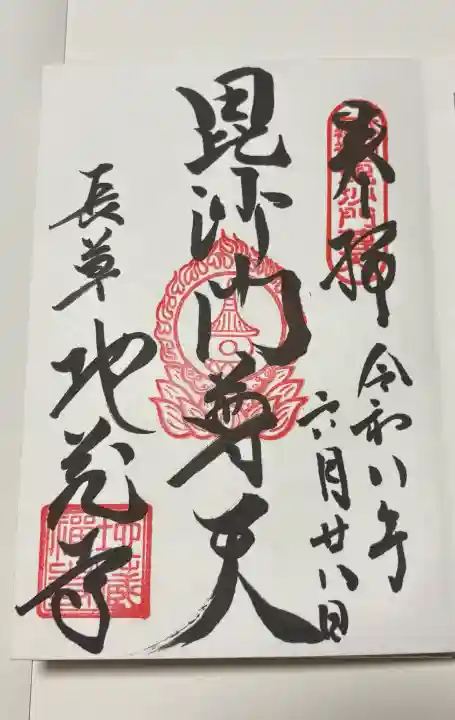 奉拝
令和八年
六月廿八日
毘沙門尊天
長草
地蔵寺